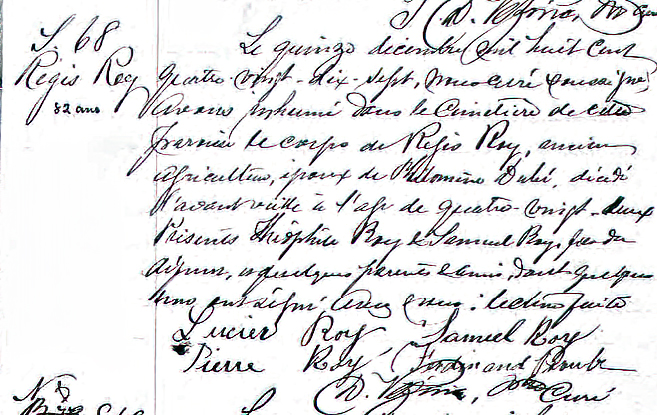 S. 68
Régis Roy
82 ans
Le quinze décembre mil huit cent
quatre-vingt-dix-sept, nous curé soussigné,
avons inhumé dans le cimetière de cette
paroisse le corps de Régis Roy, ancien
agriculteur, époux de Philomène Dubé, décédé
l'avant veille à l'age de quatre-vingt-deux
Présents Théophile Roy & Samuel Roy,
parents & amis, dont quelques
uns ont signé avec nous: lecture faite
Lucien Roy Samuel Roy
Pierre Roy Ferdinand
Curé